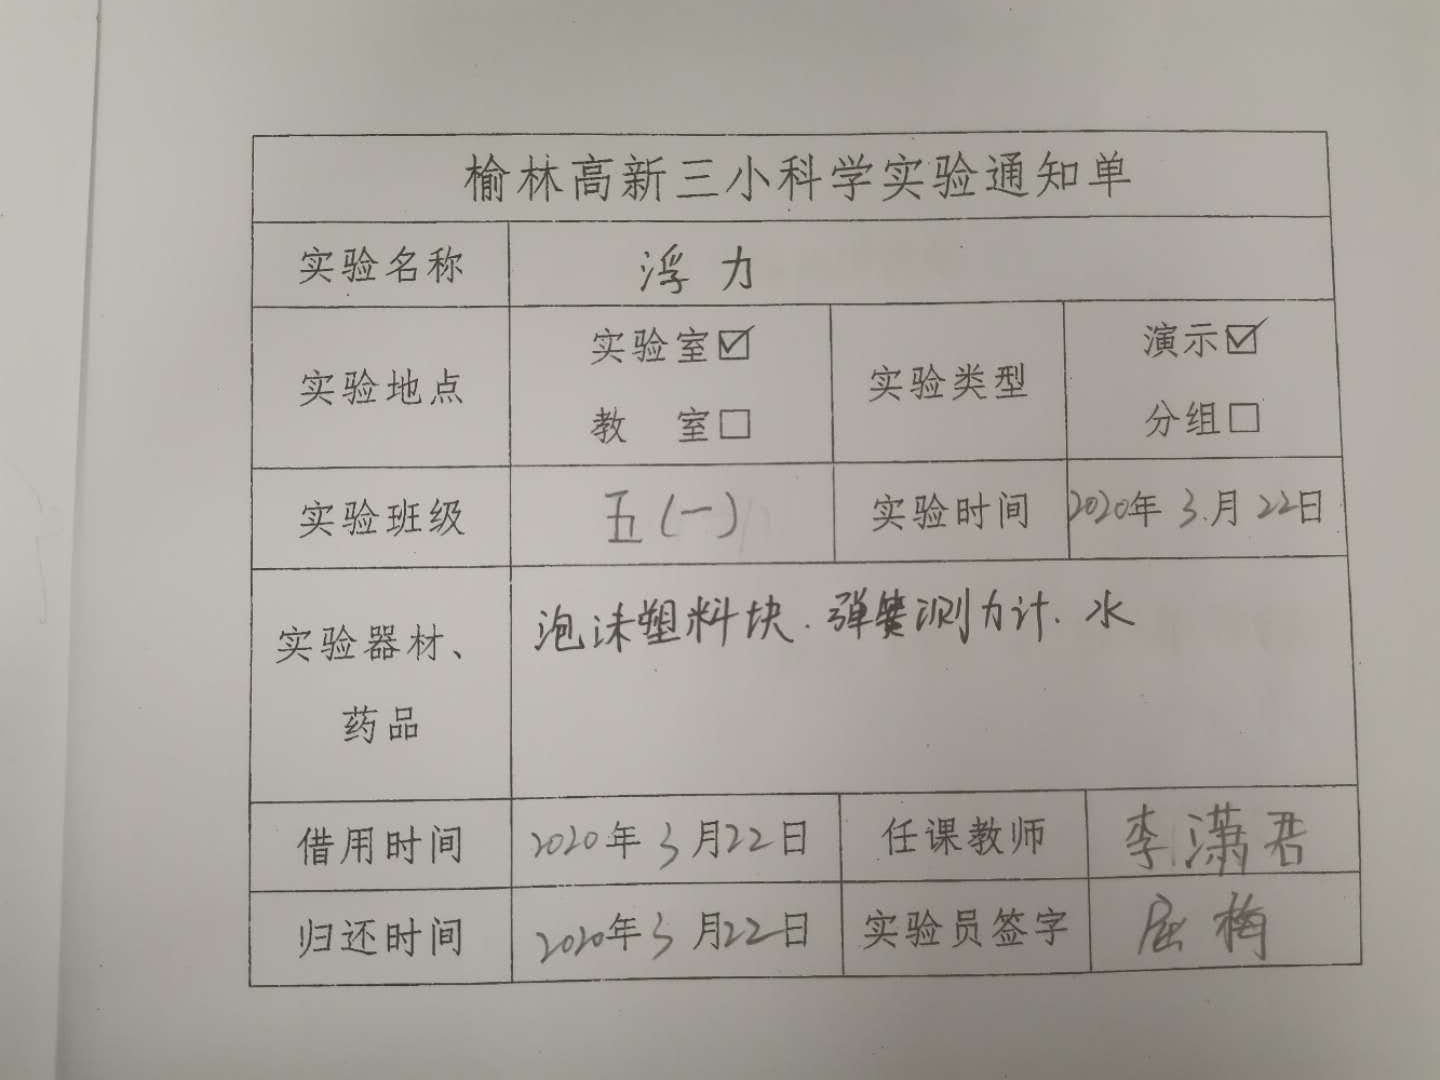 榆林高新三小科学实验通知单
实验名称 浮力
实验地点 实验室☑ 教 室□ 实验类型 演示☑ 分组□
实验班级 五(一) 实验时间 2020年3月22日
实验器材、药品 泡沫塑料块.弹簧测力计.水
借用时间 2020年3月22日 任课教师 李潇君
归还时间 2020年3月22日 实验员签字 屈梅